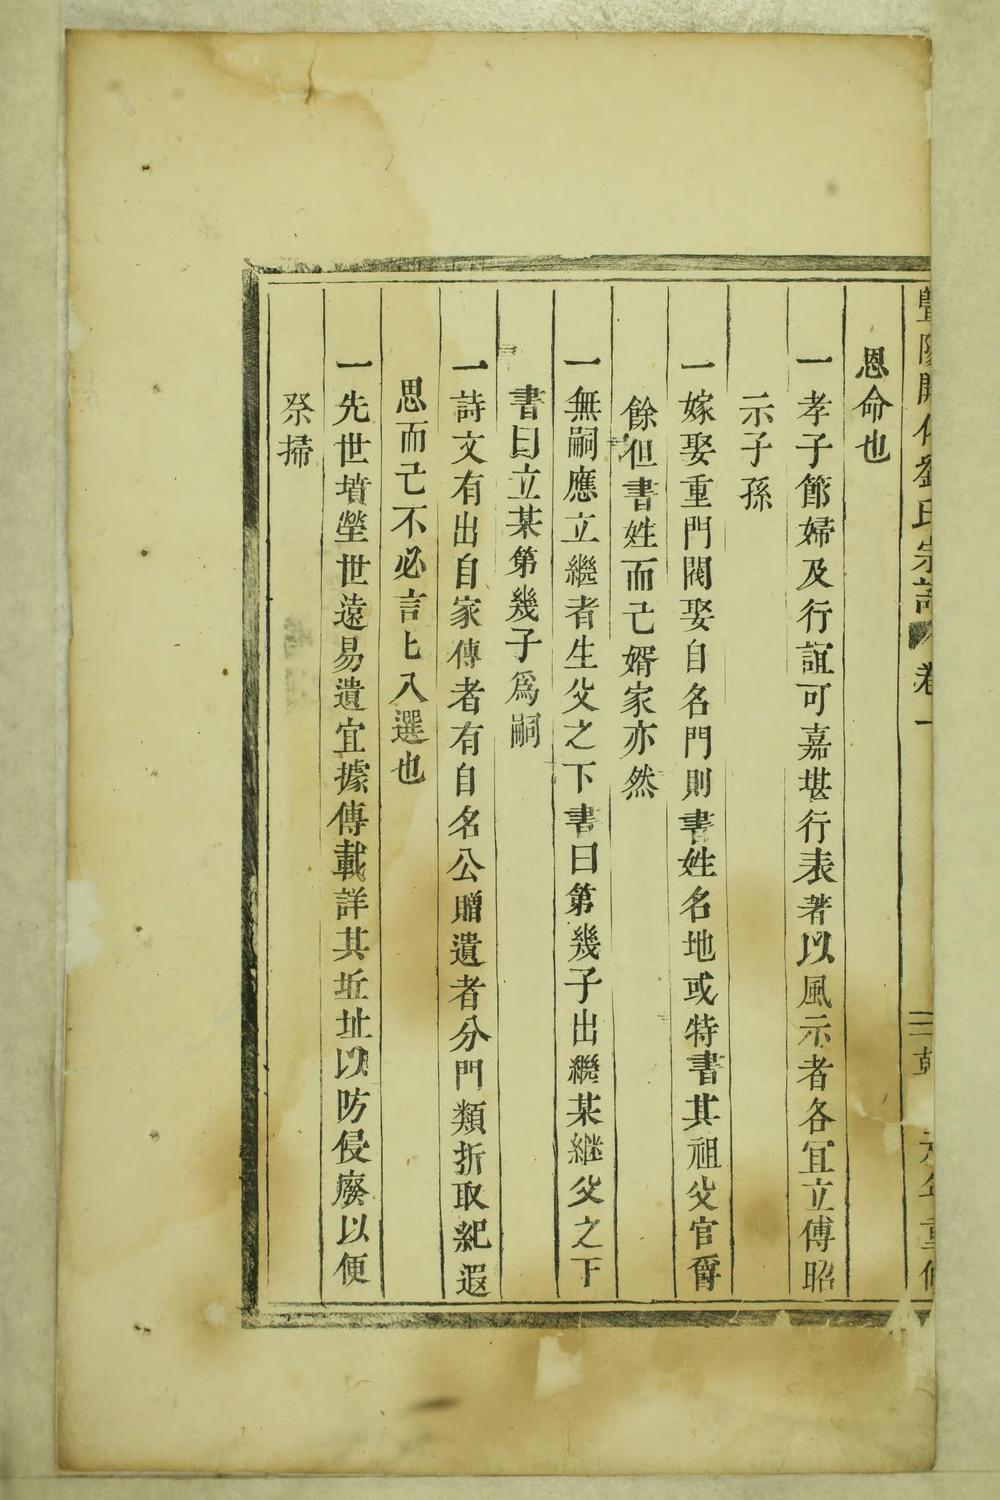 暨陽開化劉氏宗譜 卷一 三 乾 元年重修
恩命也
一孝子節婦及行誼可嘉堪行表著以風示者各宜立傳昭
示子孫
一嫁娶重門閥娶自名門則書姓名地或特書其祖父官爵
餘但書姓而已婿家亦然
一無嗣應立繼者生父之下書曰第幾子出繼某継父之下
書曰立某第幾子爲嗣
一詩文有出自家傳者有自名公贈遺者分門類折取紀遐
思而已不必言上入選也
一先世墳塋世遠易遺宜據傳載詳其坵址以防侵廢以便
祭掃